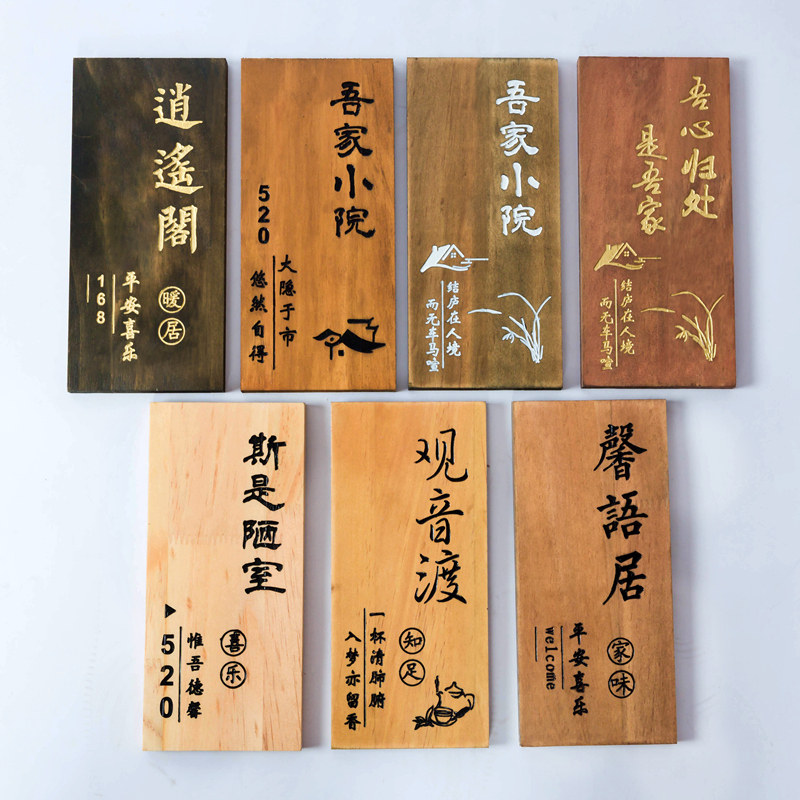 逍遙閣
暖居
平安喜乐
168
吾家小院
520
大隐于市
悠然自得
吾家小院
结庐在人境
而无车马喧
吾心归处
是吾家
结庐在人境
而无车马喧
斯是陋室
喜乐
惟吾德馨
520
观音渡
知足
一杯清肺腑
入梦亦留香
馨語居
家味
平安喜乐
welcome